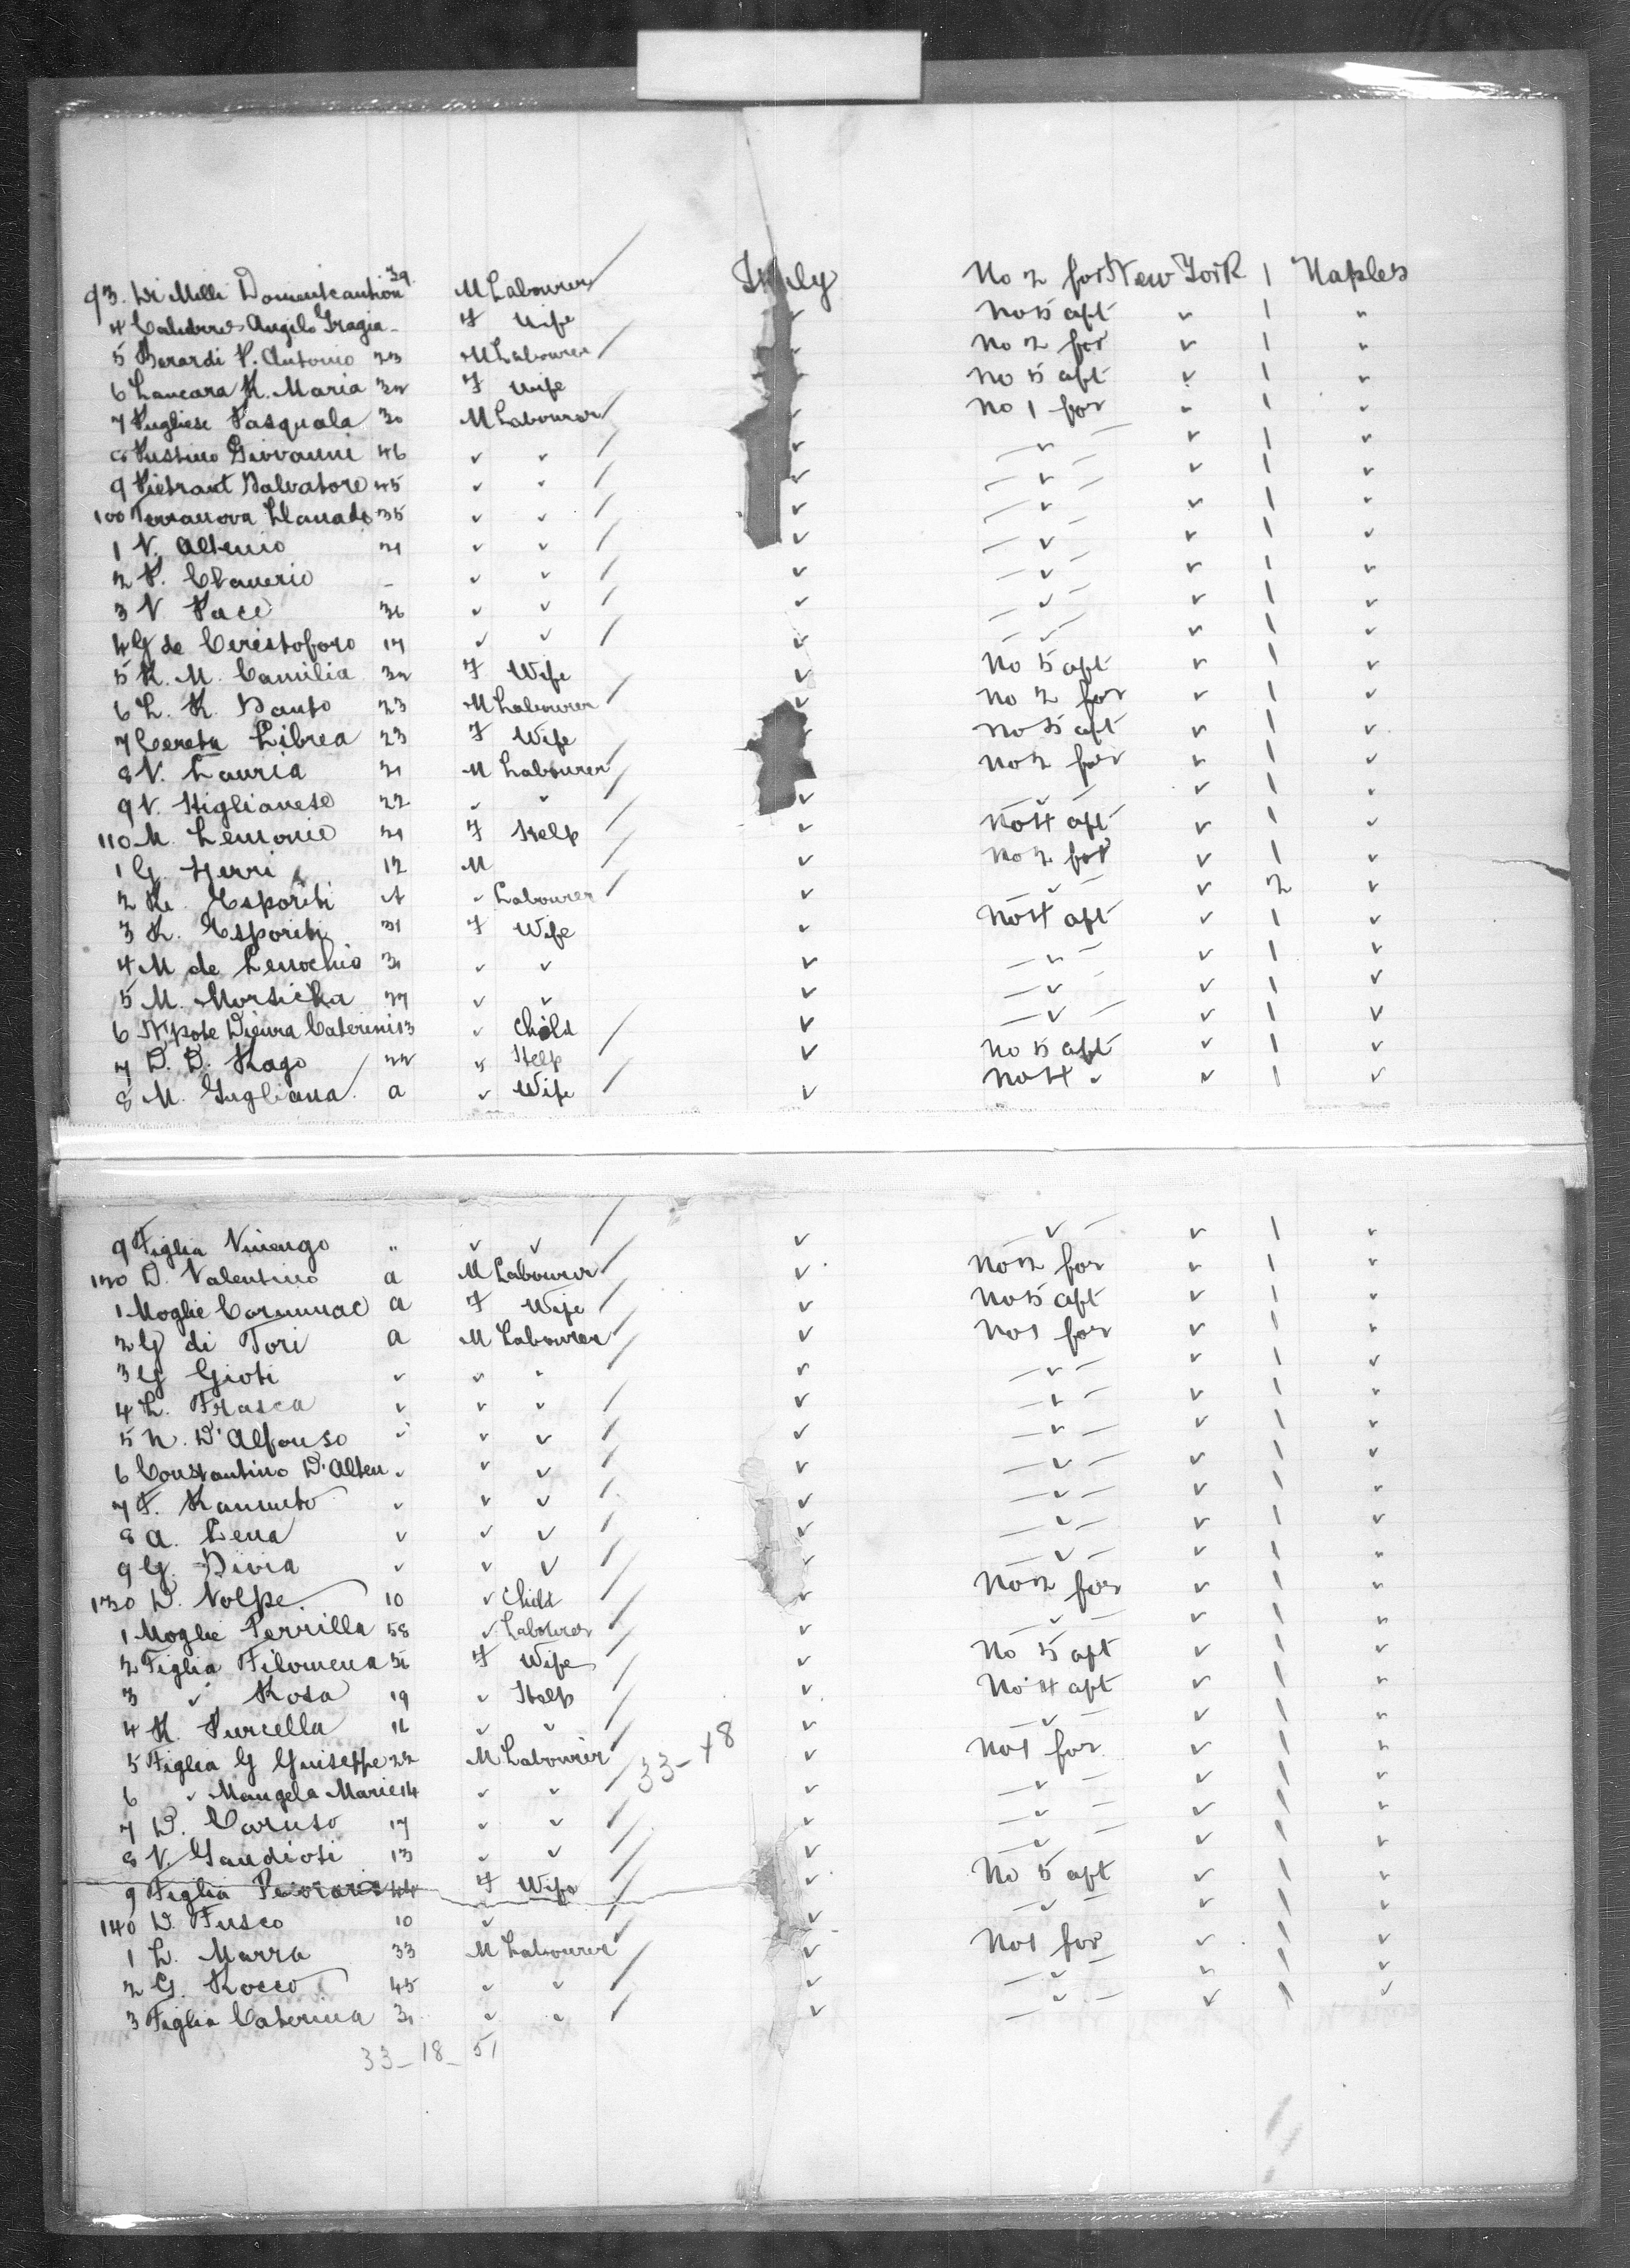 93. Di Milli Domenicantion 39 M Labourer Italy No 2 for New York 1 Naples
4 Calabres Angilo Gragia - F Wife No 5 aft " 1 "
5 Berardi P. Antonio 23 M Labourer No 2 for " 1 "
6 Lancara K. Maria 32 F Wife No 5 aft " 1 "
7 Pugliese Pasquala 30 M Labourer " No 1 for " 1 "
8 Pustino Giovanni 46 " " " — " — " 1 "
9 Pietrant Salvatore 45 " " " — " — " 1 "
100 Terranova 35 " " " — " — " 1 "
1 V. Altenio 21 " " " — " — " 1 "
2 P. - " " " — " — " 1 "
3 V Pace 36 " " " — " — " 1 "
4 G de Ceristoforo 17 " " " — " — " 1 "
5 K. M. Camilia 32 F Wife " No 5 aft " 1 "
6 L. K. Santo 23 M Labourer " No 2 for " 1 "
7 Cereta Librea 23 F Wife No 5 aft " 1 "
8 V. Lauria 21 M Labourer No 2 for " 1 "
9 V. Stiglianese 22 " " " — " — " 1 "
110 M. Lemonie 21 F Help " No 4 aft " 1 "
1 G. Herri 12 M " No 2 for " 1 "
2 K. Esporiti A " Labourer " — " — " 2 "
3 K. Esporiti 31 F Wife " No 4 aft " 1 "
4 M de Lenochio 31 " " " — " — " 1 "
5 M. Morsicka 27 " " " — " — " 1 "
6 N'pote Dieura Caterini 13 " Child " — " — " 1 "
7 D. D. Rago 22 " Help " No 5 aft " 1 "
8 M. Gugliana a " Wife " No 4 " " 1 "
9 Figlia Vincengo " " " " — " — " 1 "
120 D. Valentino a M Labourer " No 2 for " 1 "
1 Moglie a F Wife " No 5 aft " 1 "
2 G di Tori a M Labourer " No 1 for " 1 "
3 G Gioti " " " " — " — " 1 "
4 L. Frasca " " " " — " — " 1 "
5 N. D'Alfonso " " " " — " — " 1 "
6 Constantino D'Alten " " " " — " — " 1 "
7 F. Kannuto " " " " — " — " 1 "
8 A. Lena " " " " — " — " 1 "
9 G. Divia " " " " — " — " 1 "
130 D. Volpe 10 " Child " No 2 for " 1 "
1 Moglie Perrilla 58 " Labourer " — " — " 1 "
2 Figlia Filomena 56 F Wife " No 5 aft " 1 "
3 " Rosa 19 " Help " No 4 aft " 1 "
4 K. Purcella 16 " " " — " — " 1 "
5 Figlia G Guiseppe 22 M Labourer 33-18 " No 1 for " 1 "
6 " Mangela Marie 14 " " " — " — " 1 "
7 D. Caruso 17 " " " — " — " 1 "
8 V. Gaudioti 13 " " " — " — " 1 "
9 Figlia 44 F Wife " No 5 aft " 1 "
140 D. Fusco 10 " " — " — " 1 "
1 L. Marra 33 M Labourer " No 1 for " 1 "
2 G. Rocco 45 " " " — " — " 1 "
3 Figlia Caterina 31 " " " — " — " 1 "
33-18-51